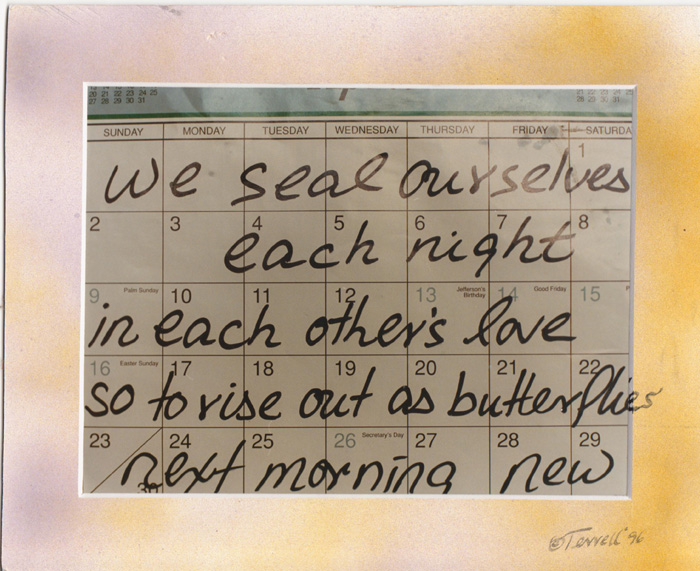 20 21 22 23 24 25
27 28 29 30 31
SUNDAY MONDAY TUESDAY WEDNESDAY THURSDAY FRIDAY SATURDA
1
we seal ourselves
2 3 4 5 6 7 8
each night
9 Palm Sunday 10 11 12 13 Jefferson's Birthday 14 Good Friday 15
in each other's love
16 Easter Sunday 17 18 19 20 21 22
so to rise out as butterflies
23 24 25 26 Secretary's Day 27 28 29
30
next morning new
©Terrell '96